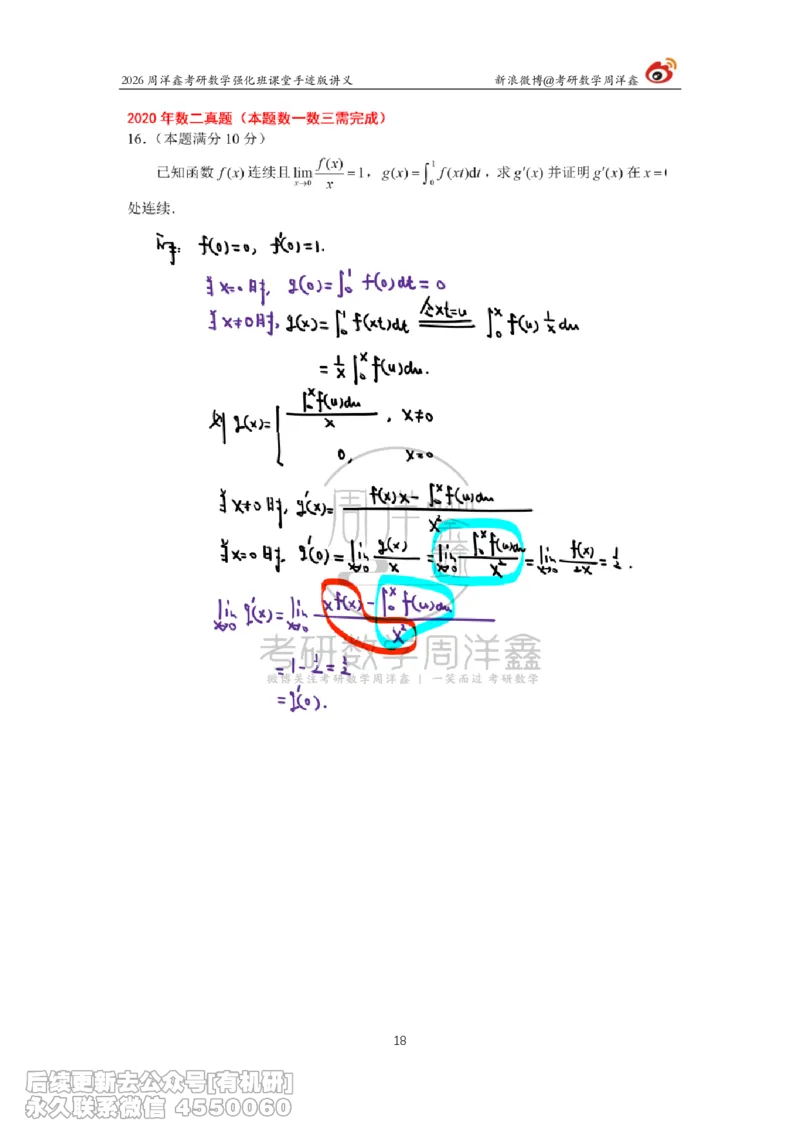 2026 周洋鑫考研数学强化班课堂手迹版讲义 新浪微博@考研数学周洋鑫
2020 年数二真题（本题数一数三需完成）
16.（本题满分 10 分）
已知函数 f(x) 连续且 lim_{x→0} f(x)/x = 1，g(x) = ∫_0^1 f(xt)dt，求 g′(x) 并证明 g′(x) 在 x =
处连续.
f(0)=0, f′(0)=1.
当x=0时, g(0)=∫_0^1 f(0)dt=0
当x≠0时, g(x)=∫_0^1 f(xt)dt 令xt=u ∫_0^x f(u) 1/x du
= 1/x ∫_0^x f(u)du.
则 g(x)= { ∫_0^x f(u)du / x , x≠0
0, x=0
当x≠0时, g′(x)= (f(x)x - ∫_0^x f(u)du) / x²
当x=0时, g′(0)= lim_{x→0} g(x)/x = lim_{x→0} ∫_0^x f(u)du / x² = lim_{x→0} f(x)/2x = 1/2.
lim_{x→0} g′(x)= lim_{x→0} (xf(x) - ∫_0^x f(u)du) / x²
= 1 - 1/2 = 1/2
= g′(0).
周洋鑫
考研数学周洋鑫
微博关注考研数学周洋鑫 | 一笑而过 考研数学
18
后续更新去公众号[有机研]
永久联系微信 4550060